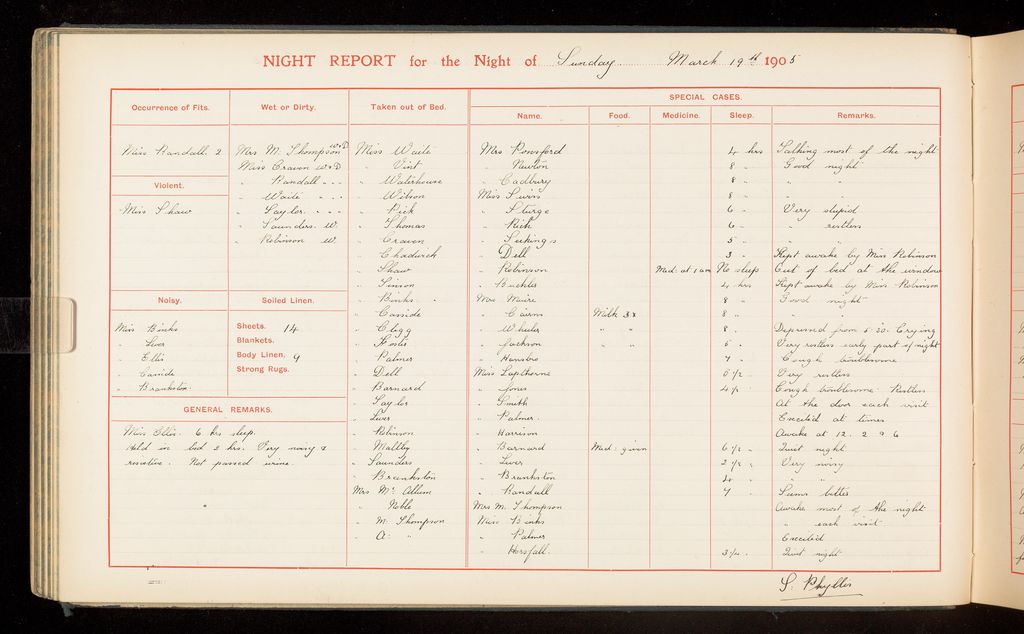 NIGHT REPORT for the Night of Sunday March 19th 1905
Occurrence of Fits.
Miss Randall. 2
Violent.
Miss Shaw
Noisy.
Miss Binks
" Liver
" Ellis
" Casside
" Brankston
Wet or Dirty.
Mrs M. Thompson W&D
Miss Craven W&D
" Randall " " "
" Waite " " "
" Saylor. " " "
" Saunders. W.
" Robinson W.
Soiled Linen.
Sheets. 14
Blankets.
Body Linen. 9
Strong Rugs.
GENERAL REMARKS.
Miss Ellis. 6 hrs sleep.
Held in bed 2 hrs. Very noisy &
resistive. Not passed urine.
Taken out of Bed.
Miss Waite
" Vert
" Waterhouse
" Wilson
" Rick
" Thomas
" Craven
" Chadwick
" Shaw
" Simson
" Binks.
" Casside
" Clegg
"
" Palmer
" Dell
" Barnard
" Saylor
" Liver
" Robinson
" Maltby
" Saunders
" Brankston
Mrs Mc Allum
" Noble
" M. Thompson
" A. "
SPECIAL CASES.
Name. Food. Medicine. Sleep. Remarks.
Mrs Ponsford 4 hrs Talking most of the night
" Newton 8 " Good night
" Cadbury 8 " "
Miss Swiss 8 " "
" Sturge 6 " Very stupid
" Rich 6 " " restless
" Seekings 5 " " "
" Dell 3 " Kept awake by Miss Robinson
" Robinson Med. at 1 am No sleep Out of bed at the window
" Buckler 4 hrs Kept awake by Miss Robinson
Mrs Maire 8 " Good night
" Cairns Milk 3x 8 " " "
" Wheeler " " 8 " Depressed from 5.30. Crying
" Jackson " " 5 " Very restless early part of night
" Hansbro 7 " Cough troublesome
Miss Lapthorne Very restless
" Jones Cough troublesome. Restless
" Smith At the door each visit
" Palmer. Excited at times
" Harrison Awake at 12. 2 & 6
" Barnard Med: given 6 1/2 " Quiet night
" Liver 2 1/2 " Very noisy
" Brankston 4 " " "
" Randall 7 " Seems better
Mrs M. Thompson Awake most of the night
Miss Binks " each visit
" Palmer Excited
" Horsfall. 3 1/4 " Quiet night
S. Phyllis